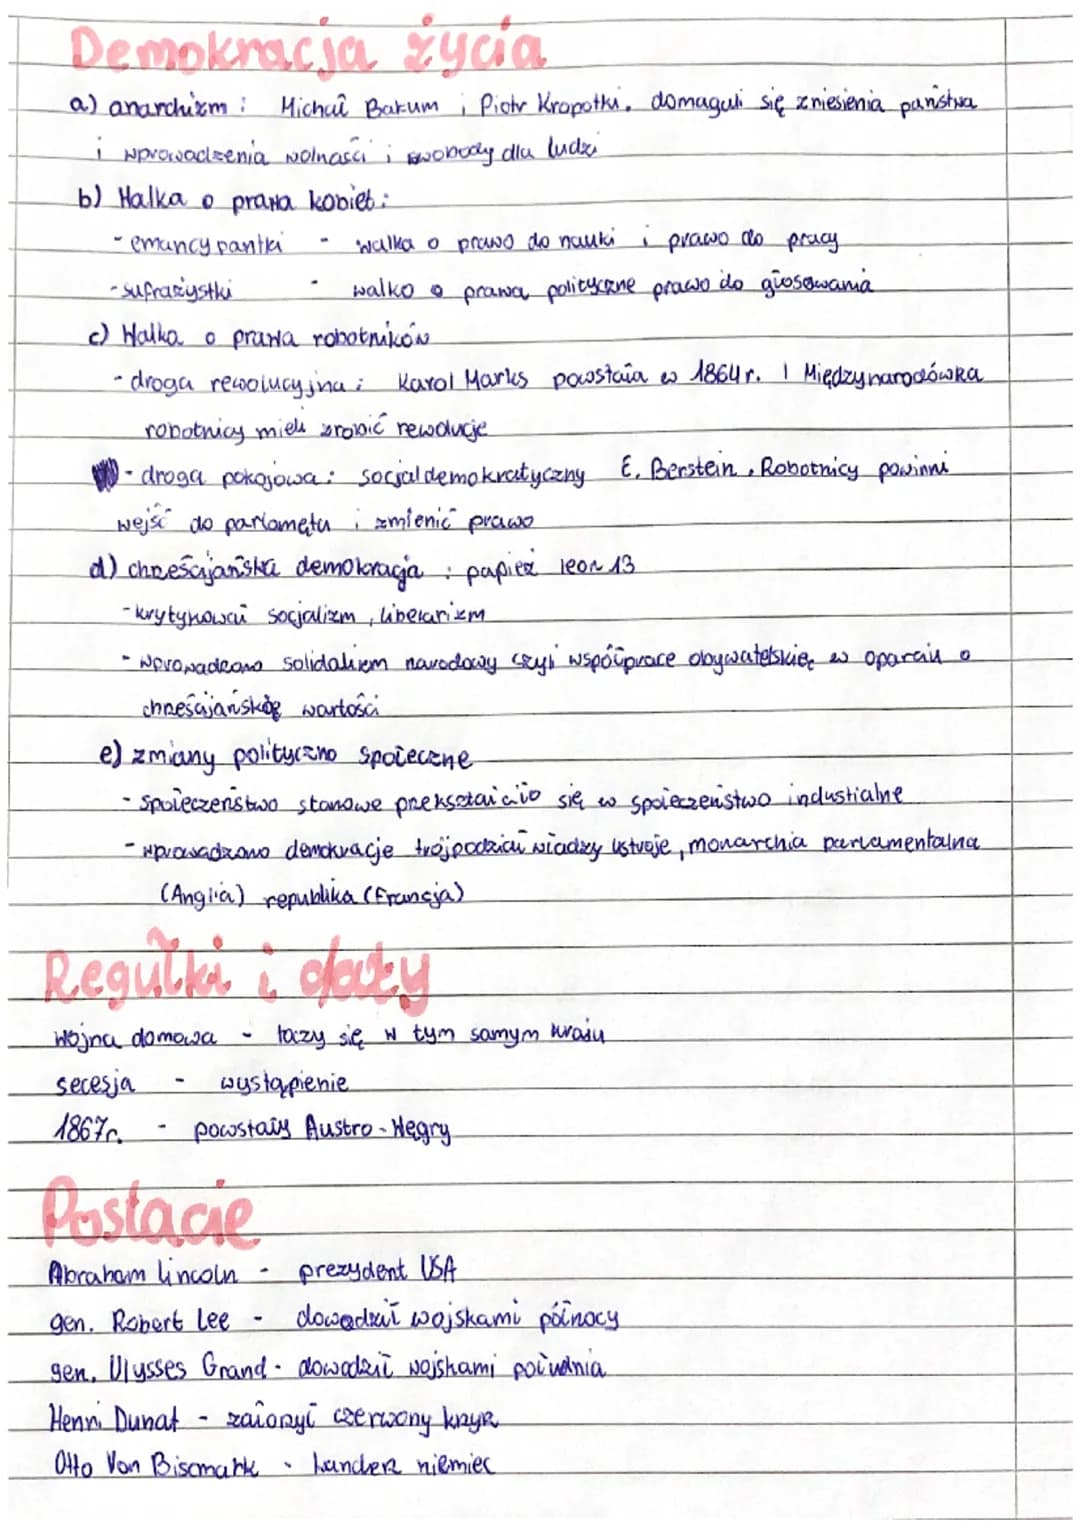 Demokracja życia
a) anarchizm : Michał Bakum i Piotr Kropotki. domaguli się zniesienia państwa
i wprowadzenia wolnaści i swobody dla ludzi
b) Walka o prawa kobiet :
- emancypantki - walka o prawo do nauki i prawo do pracy
- sufrażystki - walko o prawa polityczne prawo do głosowania
c) Walka o prawa robotników
- droga rewolucyjna : Karol Marks powstała w 1864r. I Międzynarodówka
robotnicy mieli zrobić rewolucje
- droga pokojowa : socjaldemokratyczny E. Berstein . Robotnicy powinni
wejść do parlamętu i zmienić prawo
d) chrześcijańska demokracja : papież leon 13
- krytykował socjalizm , liberarizm
- wprowadzono solidalizm narodowy czyli współprace obywatelskię w oparciu o
chrześcijańskię wartości
e) zmiany polityczno społeczne
- społeczeństwo stanowe przekształciło się w społeczeństwo industialne
- wprowadzono demokracje trójpodział władzy ustroje , monarchia parlamentalna
(Anglia) republika (Francja)
Regułki i daty
wojna domowa - toczy się w tym samym kraju
secesja - wystąpienie
1867r. - powstały Austro - Węgry
Postacie
Abraham Lincoln - prezydent USA
gen. Robert Lee - dowodził wojskami północy
gen. Ulysses Grand - dowodził wojskami południa
Henri Dunat - założył czerwony krzyż
Otto Von Biscmark - kanclerz niemiec